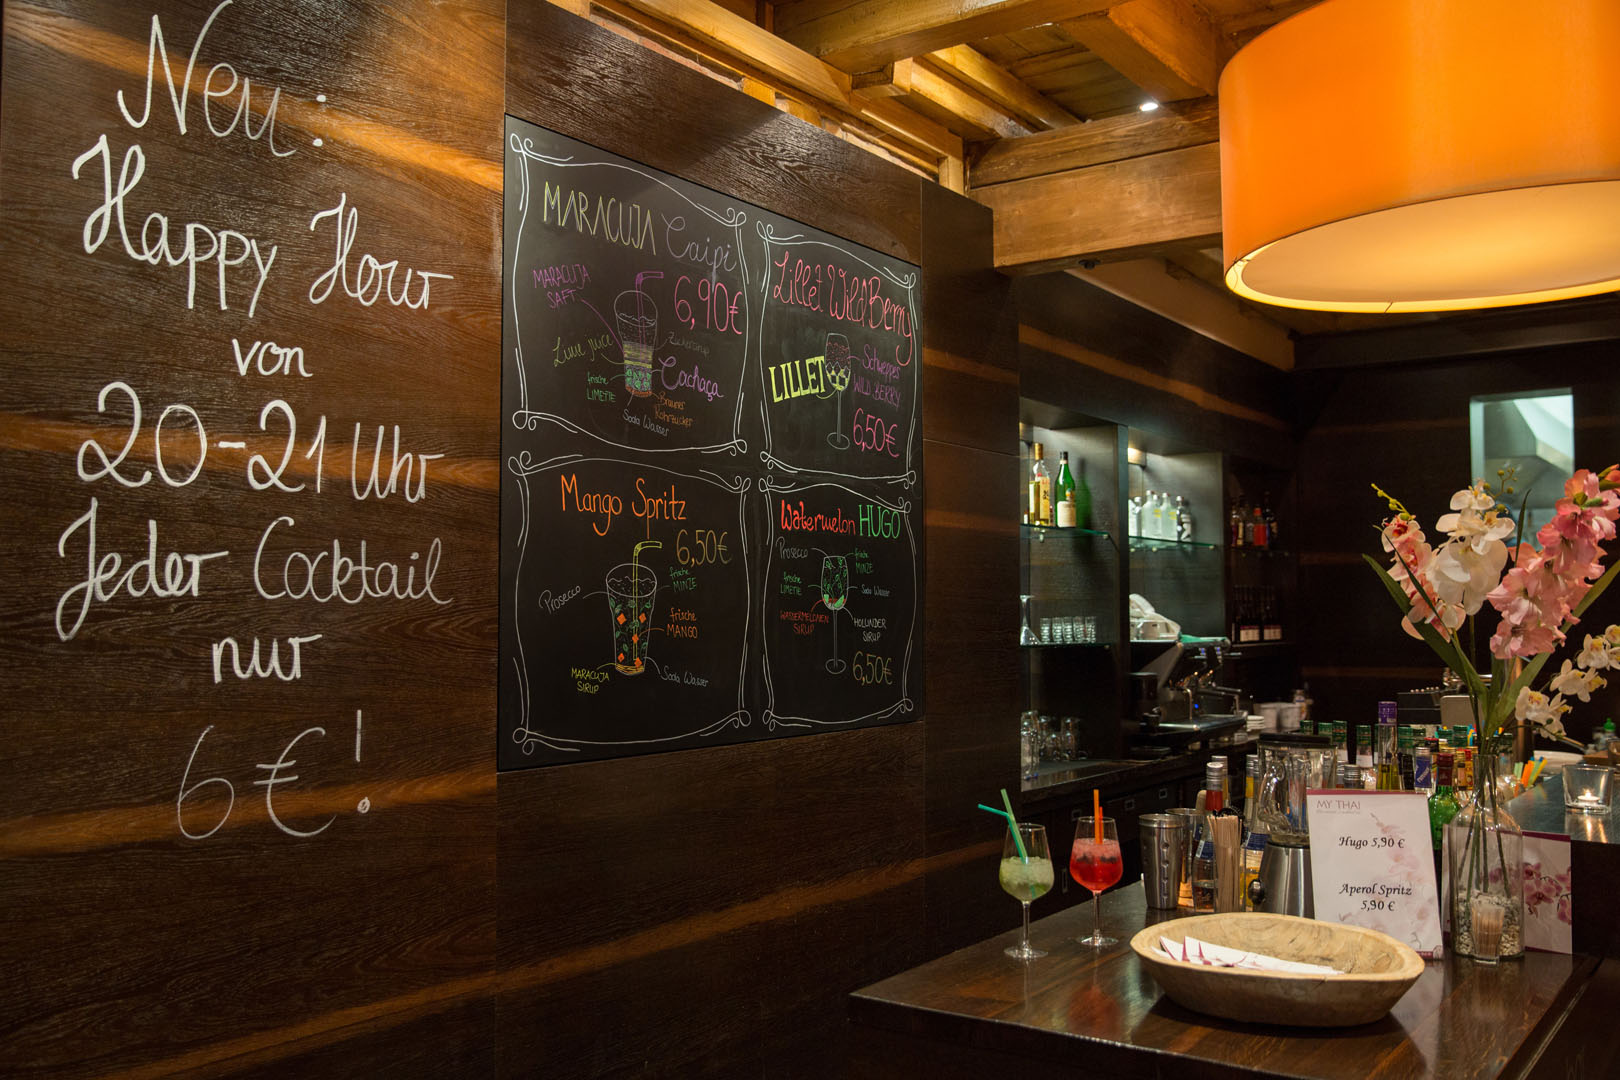 Neu:
Happy Hour
von
20-21 Uhr
Jeder Cocktail
nur
6€!
MARACUJA Caipi
MARACUJA
SAFT
6,90€
Lime juice
Zuckersirup
frische
LIMETTE
Cachaça
Brauner
Rohrzucker
Soda Wasser
Lillet Wild Berry
LILLET
Schweppes
WILD BERRY
6,50€
Mango Spritz
6,50€
Prosecco
frische
MINZE
frische
MANGO
MARACUJA
SIRUP
Soda Wasser
Watermelon HUGO
Prosecco
frische
MINZE
frische
LIMETTE
Soda Wasser
WASSERMELONEN
SIRUP
HOLUNDER
SIRUP
6,50€
MY THAI
Hugo 5,90 €
Aperol Spritz
5,90 €